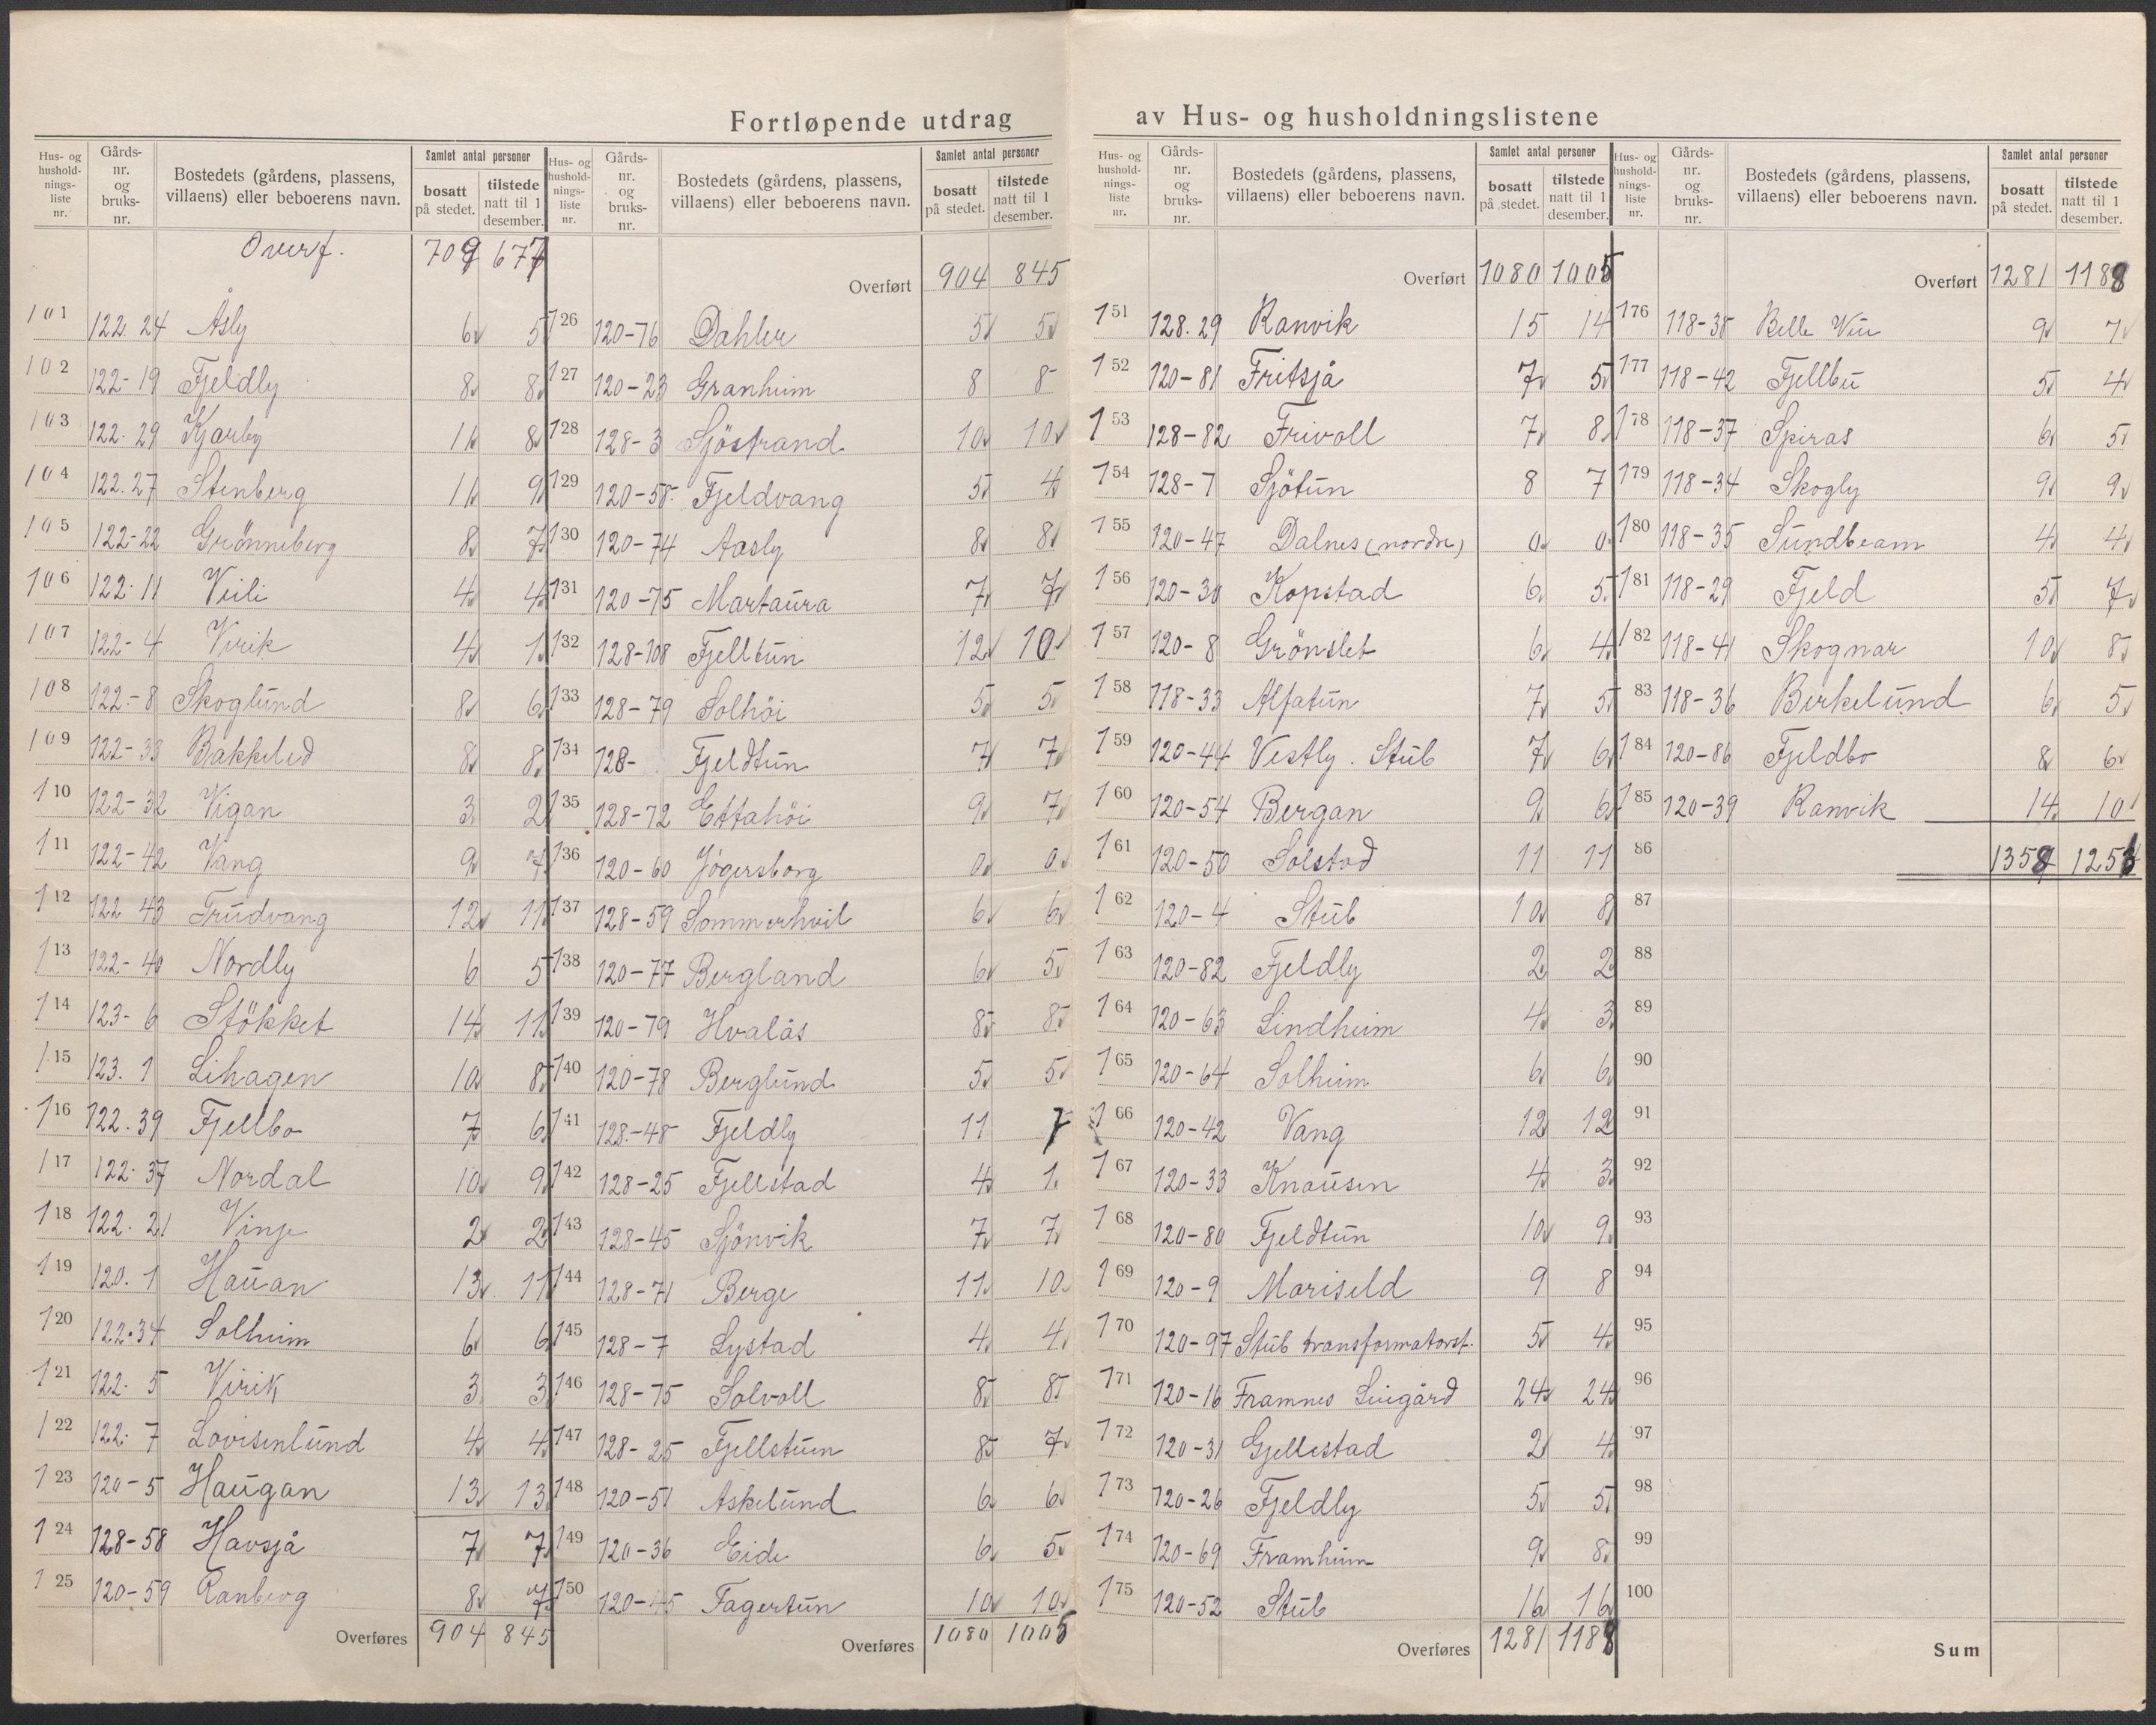 Fortløpende utdrag av Hus- og husholdningslistene
Hus- og husholdningsliste nr.
Gårdsnr. og bruksnr.
Bostedets (gårdens, plassens, villaens) eller beboerens navn.
Samlet antal personer
bosatt på stedet.
tilstede natt til 1 desember.
Overf. 709 677
101 122 24 Åsly 6 5
102 122-19 Fjeldly 8 8
103 122-29 Kjarby 11 8
104 122.27 Stenberg 11 9
105 122-22 Grønneberg 8 7
106 122-11 Veili 4 4
107 122-4 Virik 4 1
108 122-8 Skoglund 8 6
109 122-33 Bakkelid 8 8
110 122-32 Vigan 3 2
111 122-42 Vang 9 7
112 122 43 Trudvang 12 11
113 122-40 Nordly 6 5
114 123-6 Støkket 14 11
115 123.1 Lihagen 10 8
116 122.39 Fjellbo 7 6
117 122.37 Nordal 10 9
118 122.21 Vinje 2 2
119 120.1 Hauan 13 11
120 122.34 Solheim 6 6
121 122.5 Virik 3 3
122 122.7 Lovisenlund 4 4
123 120-5 Haugan 13 13
124 128-58 Havsjå 7 7
125 120-59 Ranberg 8 7
Overføres 904 845
Hus- og husholdningsliste nr.
Gårdsnr. og bruksnr.
Bostedets (gårdens, plassens, villaens) eller beboerens navn.
Samlet antal personer
bosatt på stedet.
tilstede natt til 1 desember.
Overført 904 845
126 120-76 Dahler 5 5
127 120-23 Granheim 8 8
128 128-3 Sjöstrand 10 10
129 120-58 Fjeldvang 5 4
130 120-74 Aasly 8 8
131 120-75 Martaura 7 7
132 128-108 Fjelltun 12 10
133 128-79 Solhöi 5 5
134 128- Fjeldtun 7 7
135 128-72 Ettahöi 9 7
136 120-60 Jögersborg 0 0
137 128-59 Sommerhvil 6 6
138 120-77 Bergland 6 5
139 120-79 Hvalås 8 8
140 120-78 Berglund 5 5
141 128-48 Fjeldly 11 7
142 128-25 Fjellstad 4 1
143 128-45 Sjönvik 7 7
144 128-71 Berge 11 10
145 128-7 Lystad 4 4
146 128-75 Solvoll 8 8
147 128-25 Fjellstuen 8 7
148 120-51 Askelund 6 6
149 120-36 Eide 6 5
150 120-45 Fagertun 10 10
Overføres 1080 1005
Hus- og husholdningsliste nr.
Gårdsnr. og bruksnr.
Bostedets (gårdens, plassens, villaens) eller beboerens navn.
Samlet antal personer
bosatt på stedet.
tilstede natt til 1 desember.
Overført 1080 1005
151 128.29 Ranvik 15 14
152 120-81 Fritsjå 7 5
153 128-82 Frivoll 7 8
154 128-7 Sjötun 8 7
155 120-47 Dalnes (nordre) 0 0
156 120-30 Kopstad 6 5
157 120-8 Grönslet 6 4
158 118-33 Alfatun 7 5
159 120-44 Vestly. Stub 7 6
160 120-54 Bergan 9 6
161 120-50 Solstad 11 11
162 120-4 Stub 10 8
163 120-82 Fjeldly 2 2
164 120-63 Lindheim 4 3
165 120-64 Solheim 6 6
166 120-42 Vang 12 12
167 120-33 Knausen 4 3
168 120-80 Fjeldtun 10 9
169 120-9 Mariseld 9 8
170 120-97 Stub transformatorst. 5 4
171 120-16 Framnes Leiegård 24 24
172 120-31 Gjellestad 2 4
173 120-26 Fjeldly 5 5
174 120-69 Framheim 9 8
175 120-52 Stub 16 16
Overføres 1281 1188
Hus- og husholdningsliste nr.
Gårdsnr. og bruksnr.
Bostedets (gårdens, plassens, villaens) eller beboerens navn.
Samlet antal personer
bosatt på stedet.
tilstede natt til 1 desember.
Overført 1281 1188
176 118-38 Belle Vue 9 7
177 118-42 Fjellbu 5 4
178 118-37 Spiras 6 5
179 118-34 Skogly 9 9
180 118-35 Sundbeam 4 4
181 118-29 Fjeld 5 7
182 118-41 Skognar 10 8
83 118-36 Birkelund 6 5
184 120-86 Fjeldbo 8 6
185 120-39 Ranvik 14 10
86 1358 1253
87
88
89
90
91
92
93
94
95
96
97
98
99
100
Sum